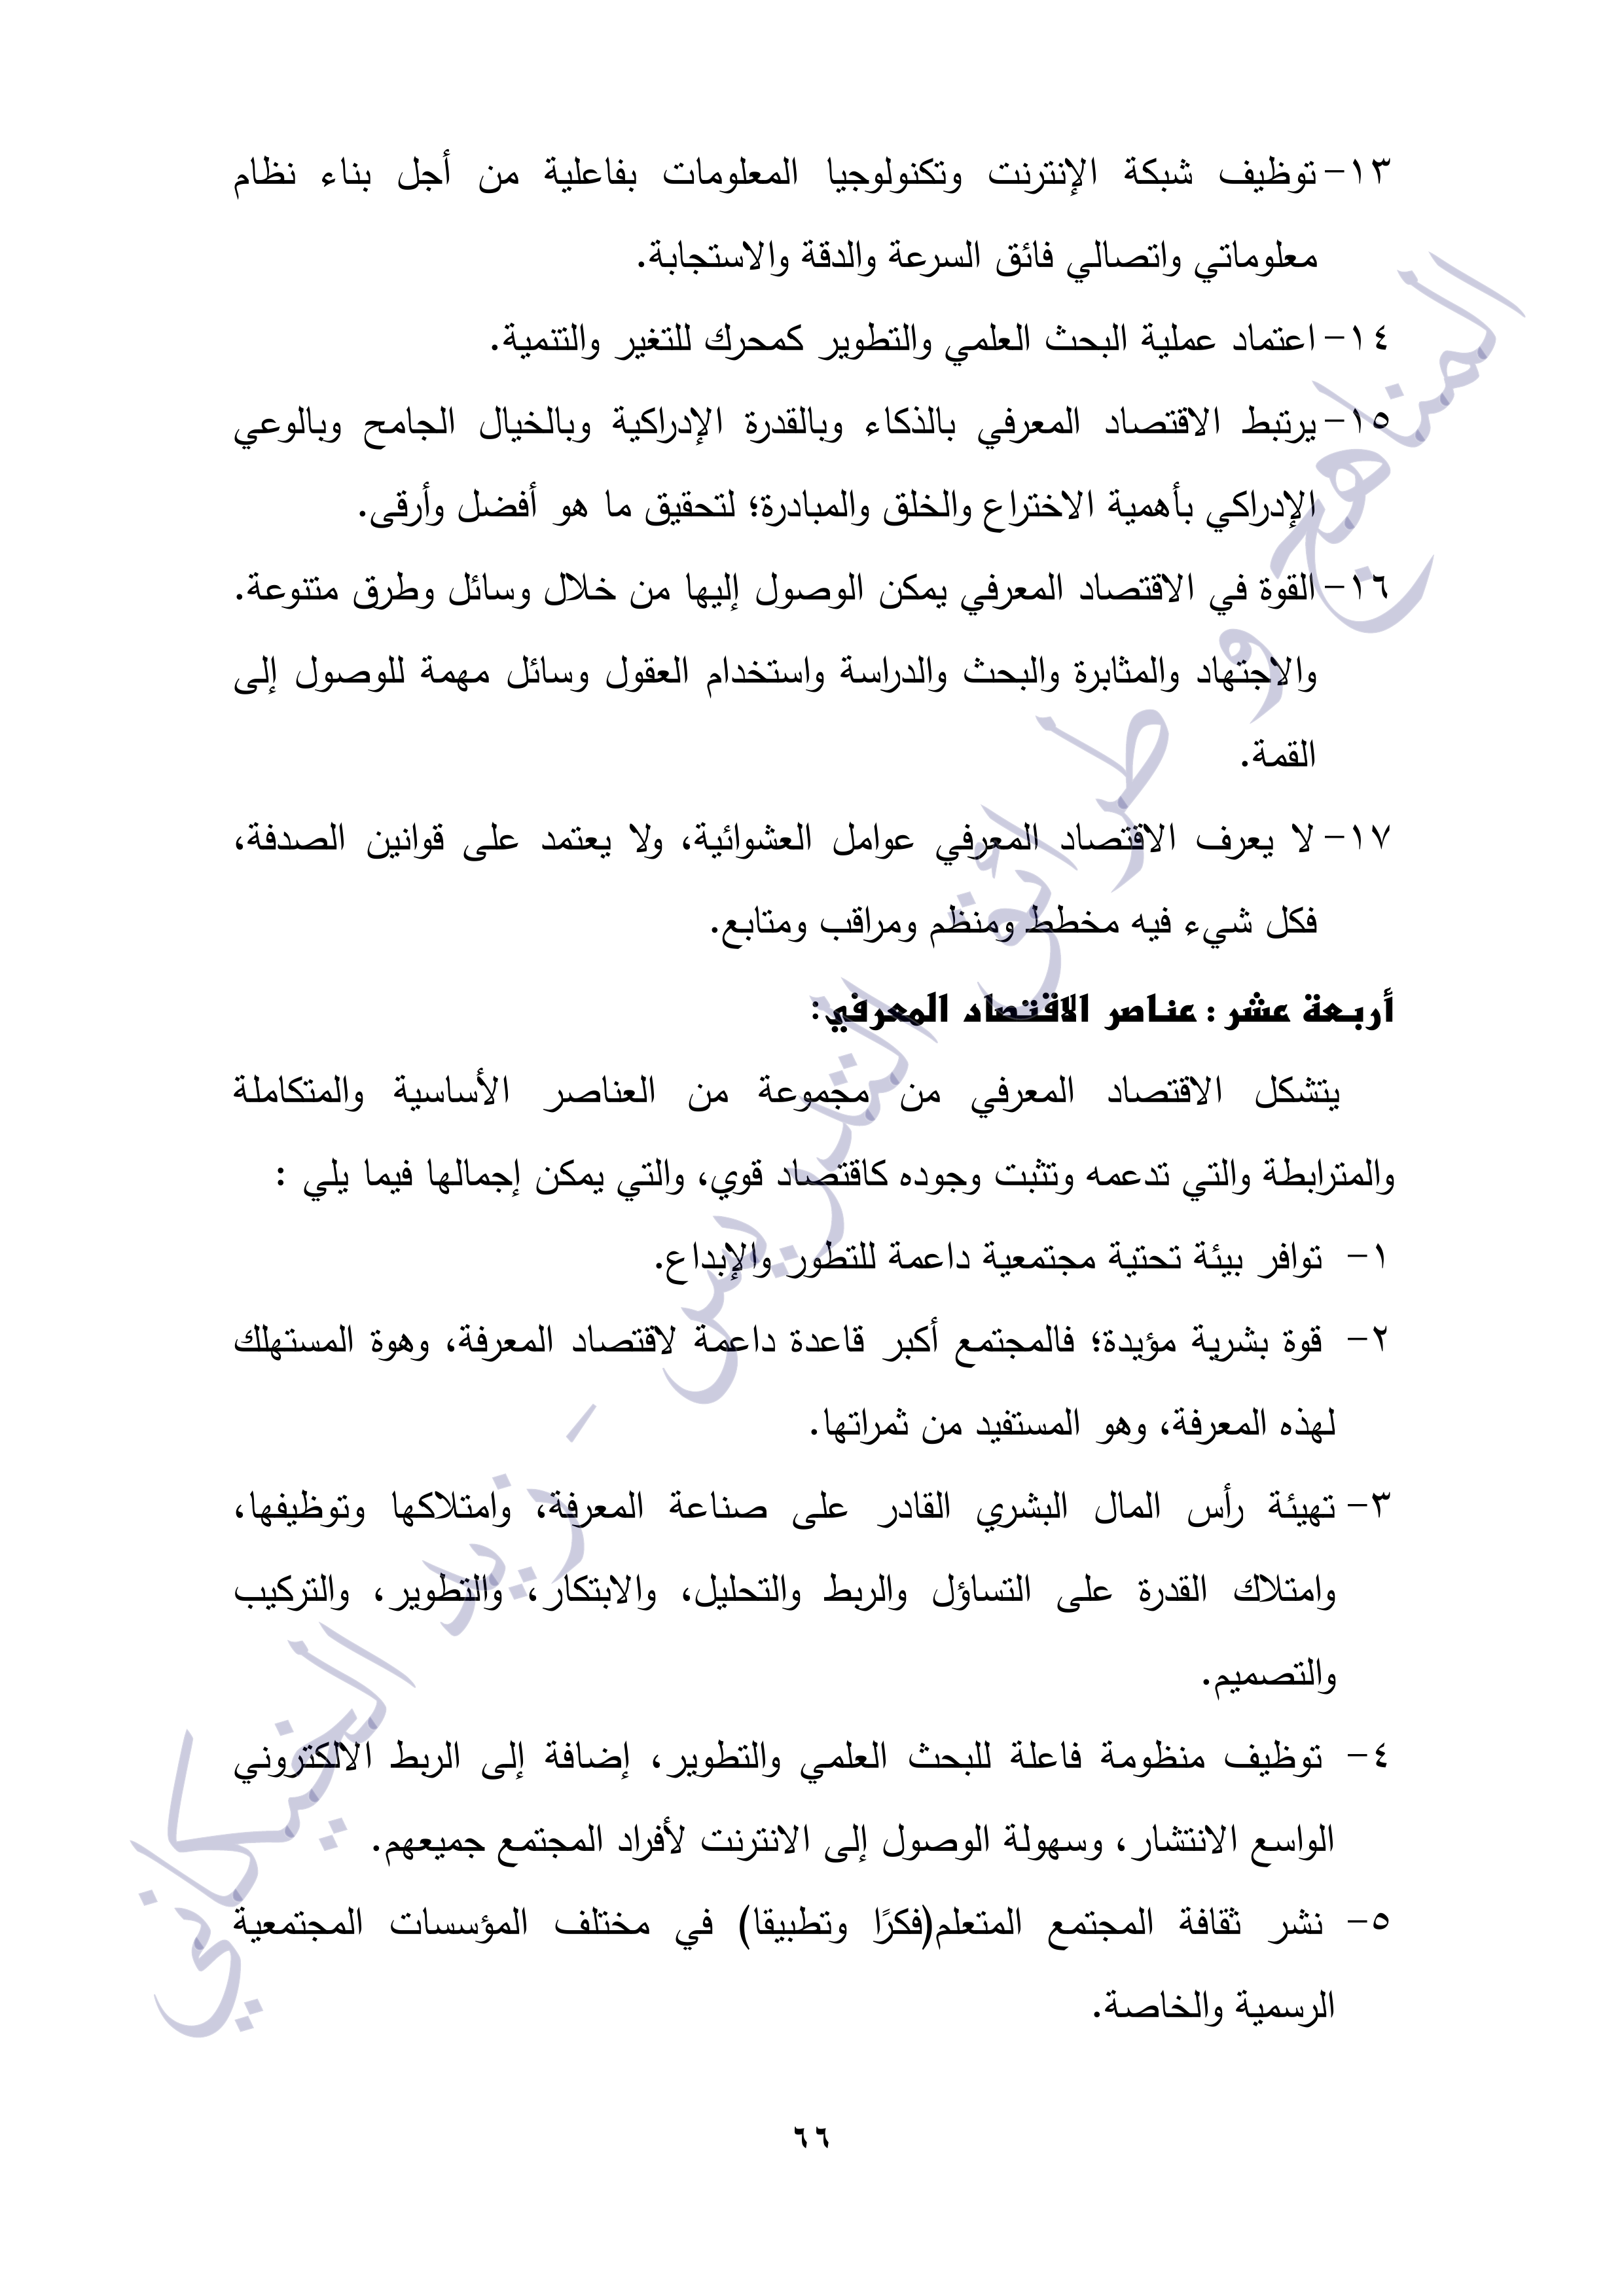 ١٣- توظيف شبكة الإنترنت وتكنولوجيا المعلومات بفاعلية من أجل بناء نظام
معلوماتي واتصالي فائق السرعة والدقة والاستجابة.
١٤- اعتماد عملية البحث العلمي والتطوير كمحرك للتغير والتنمية.
١٥- يرتبط الاقتصاد المعرفي بالذكاء وبالقدرة الإدراكية وبالخيال الجامح وبالوعي
الإدراكي بأهمية الاختراع والخلق والمبادرة؛ لتحقيق ما هو أفضل وأرقى.
١٦- القوة في الاقتصاد المعرفي يمكن الوصول إليها من خلال وسائل وطرق متنوعة.
والاجتهاد والمثابرة والبحث والدراسة واستخدام العقول وسائل مهمة للوصول إلى
القمة.
١٧- لا يعرف الاقتصاد المعرفي عوامل العشوائية، ولا يعتمد على قوانين الصدفة،
فكل شيء فيه مخطط ومنظم ومراقب ومتابع.
أربعة عشر : عناصر الاقتصاد المعرفي:
يتشكل الاقتصاد المعرفي من مجموعة من العناصر الأساسية والمتكاملة
والمترابطة والتي تدعمه وتثبت وجوده كاقتصاد قوي، والتي يمكن إجمالها فيما يلي :
١- توافر بيئة تحتية مجتمعية داعمة للتطور والإبداع.
٢- قوة بشرية مؤيدة؛ فالمجتمع أكبر قاعدة داعمة لاقتصاد المعرفة، وهوة المستهلك
لهذه المعرفة، وهو المستفيد من ثمراتها.
٣- تهيئة رأس المال البشري القادر على صناعة المعرفة، وامتلاكها وتوظيفها،
وامتلاك القدرة على التساؤل والربط والتحليل، والابتكار، والتطوير، والتركيب
والتصميم.
٤- توظيف منظومة فاعلة للبحث العلمي والتطوير، إضافة إلى الربط الالكتروني
الواسع الانتشار، وسهولة الوصول إلى الانترنت لأفراد المجتمع جميعهم.
٥- نشر ثقافة المجتمع المتعلم(فكرًا وتطبيقا) في مختلف المؤسسات المجتمعية
الرسمية والخاصة.
٦٦
المناهج و طرائق التدريس - زيد الخيكاني